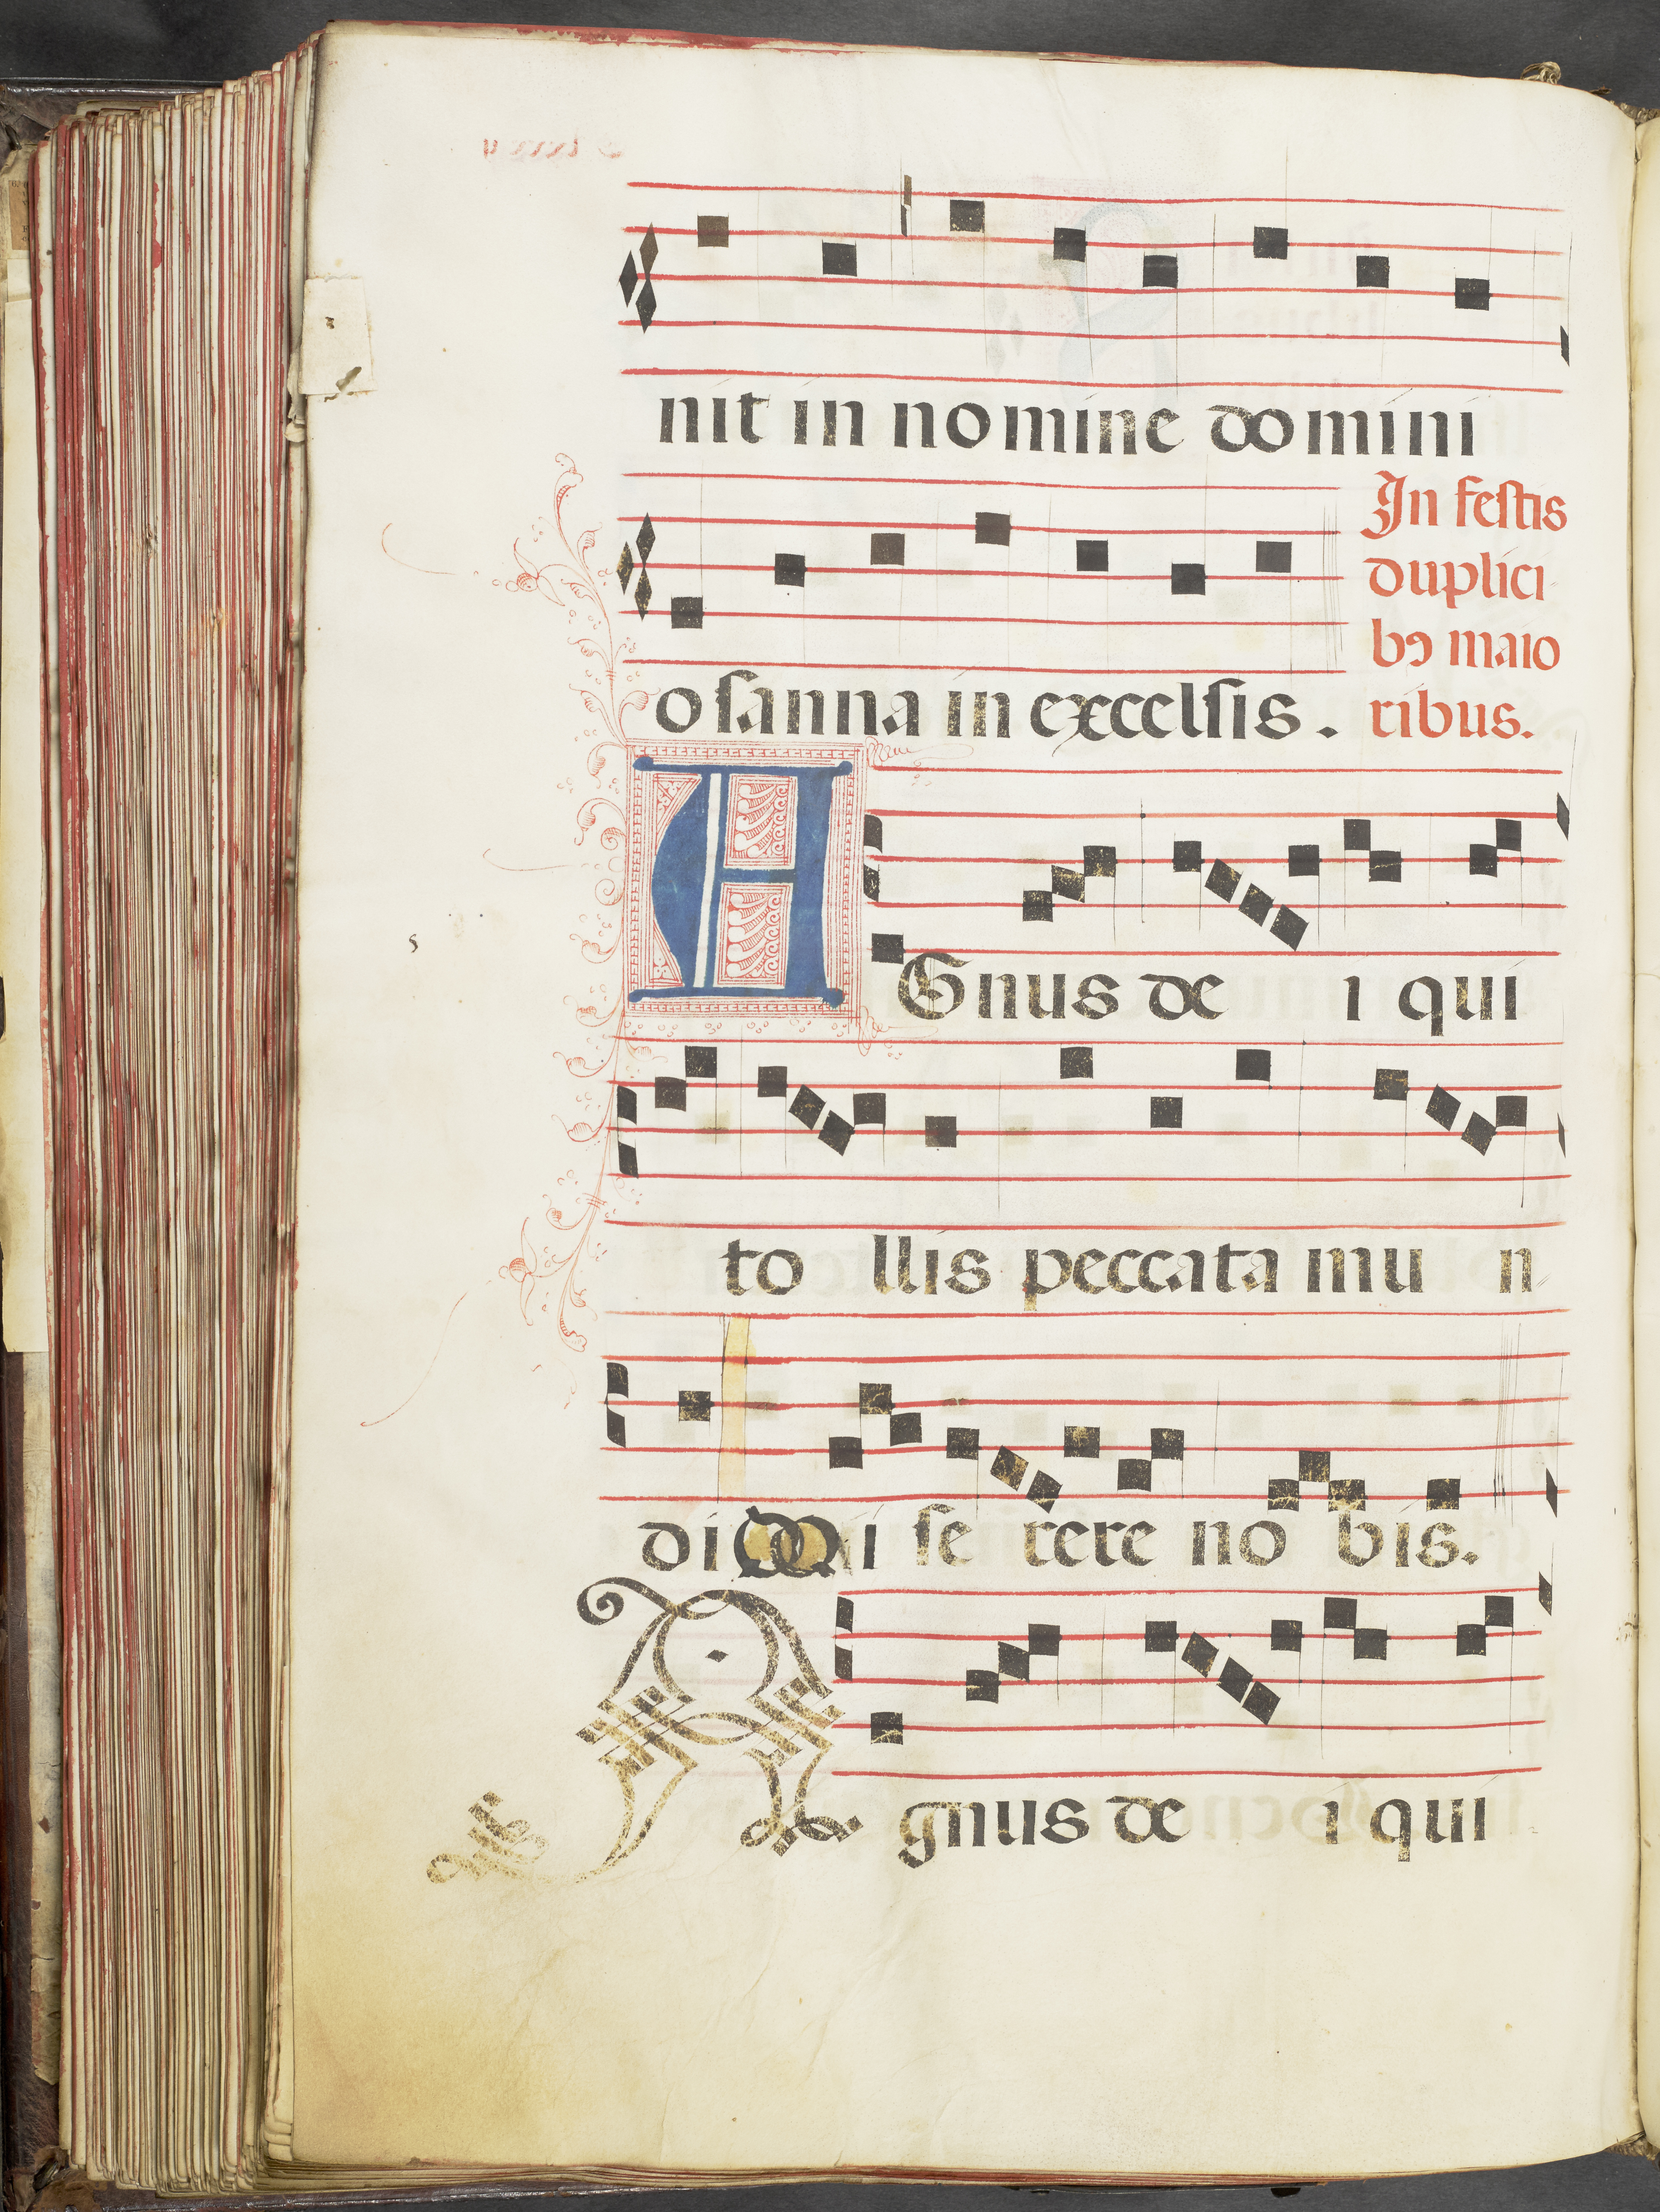 nit in nomine domini
osanna in excelsis.
In festis
duplici
bꝰ maio
ribus.
AGnus de i qui
to llis peccata mu n
di mi se rere no bis.
Agnus de i qui